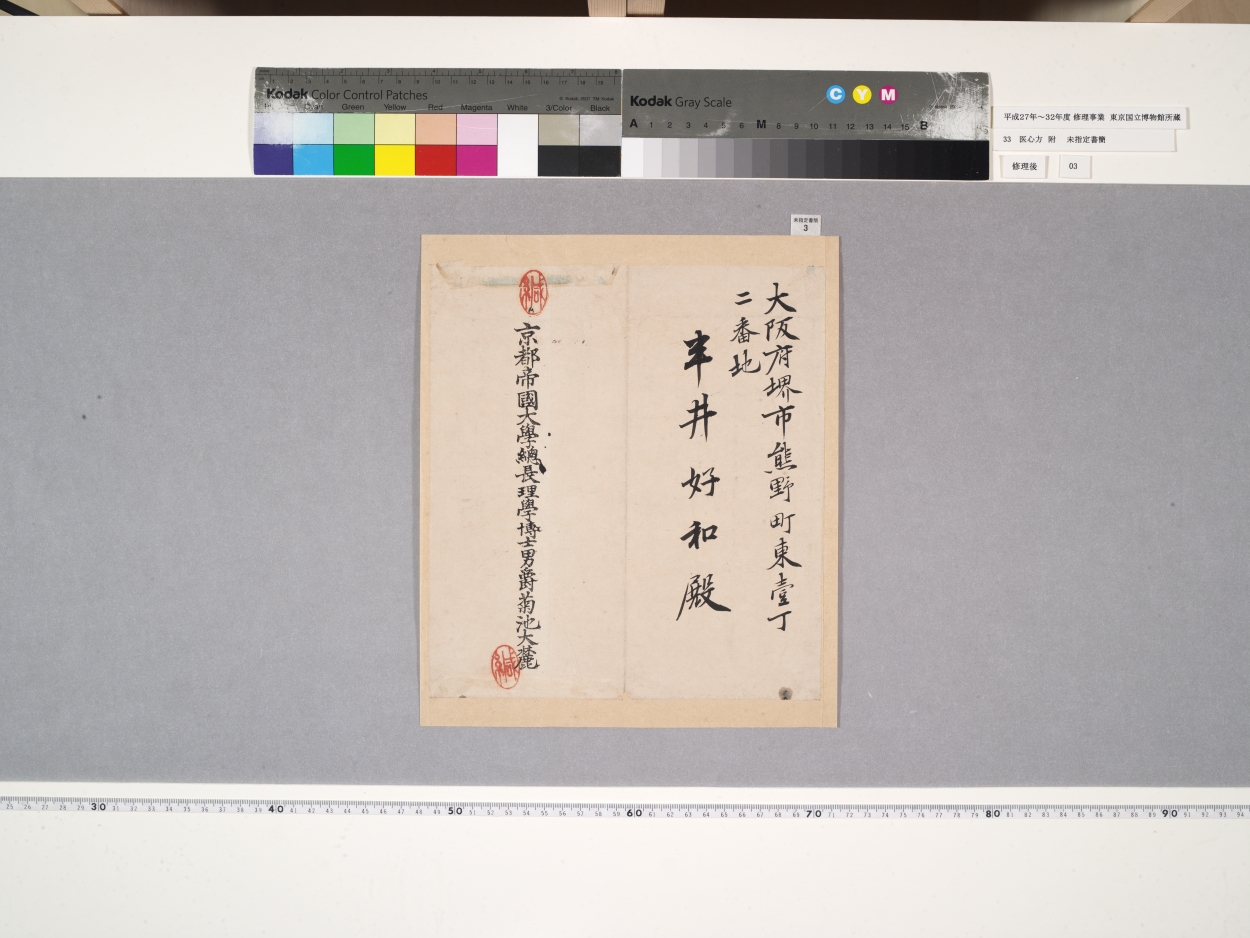 Kodak Color Control Patches
Green Yellow Red Magenta White 3/Color Black
Kodak Gray Scale
C Y M
A 1 2 3 4 5 6 M 8 9 10 11 12 13 14 15 B
平成27年～32年度 修理事業 東京国立博物館所蔵
33 医心方 附 未指定書簡
修理後
03
未指定書簡
3
大阪府堺市熊野町東壹丁
二番地
半井好和殿
緘
京都帝國大學總長理學博士男爵菊池大麓
緘
25 26 27 28 29 30 31 32 33 34 35 36 37 38 39 40 41 42 43 44 45 46 47 48 49 50 51 52 53 54 55 56 57 58 59 60 61 62 63 64 65 66 67 68 69 70 71 72 73 74 75 76 77 78 79 80 81 82 83 84 85 86 87 88 89 90 91 92 93 94